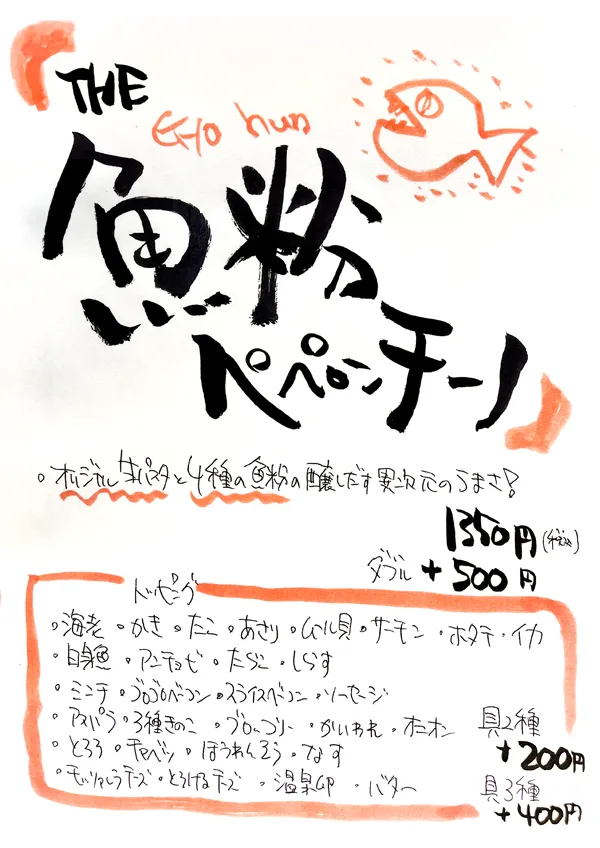 「THE
Gyo hun
魚粉
ペペロンチーノ」
・オリジナル生パスタと4種の魚粉の醸しだす異次元のうまさ!
1350円(税込)
ダブル +500円
トッピング
・海老 ・かき ・たこ ・あさり ・ムール貝 ・サーモン ・ホタテ ・イカ
・白身魚 ・アンチョビ ・たらこ ・しらす
・ミンチ ・ゴロゴロベーコン ・スライスベーコン ・ソーセージ
・アスパラ ・3種きのこ ・ブロッコリー ・かいわれ ・オニオン
・とろろ ・キャベツ ・ほうれんそう ・なす
・モッツァレラチーズ ・とろけるチーズ ・温泉卵 ・バター
具2種
+200円
具3種
+400円